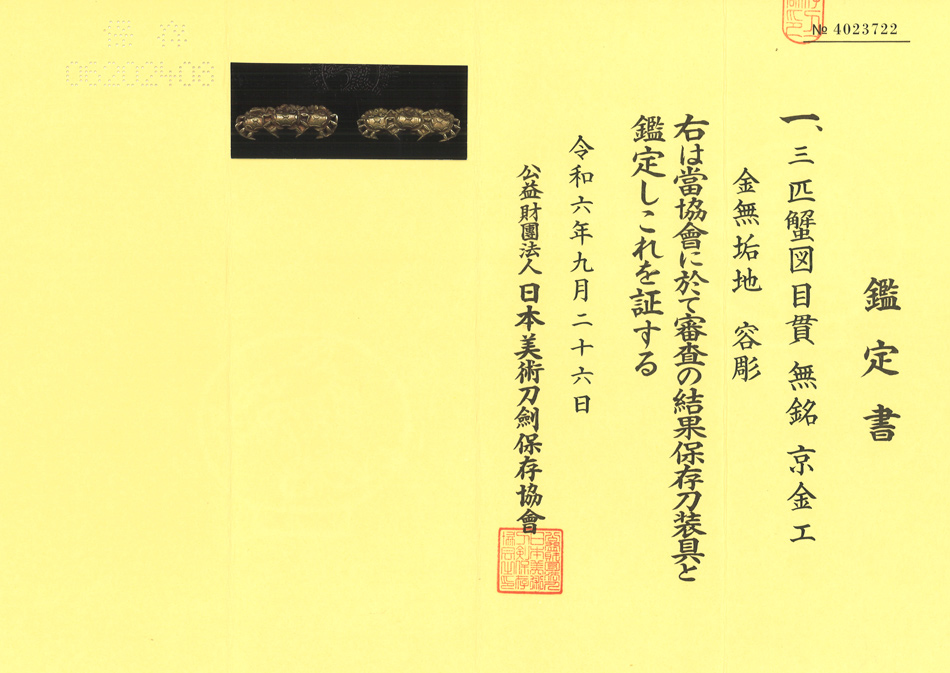 № 4023722
鑑定書
一、三匹蟹図目貫 無銘 京金工
金無垢地 容彫
右は當協會に於て審査の結果保存刀装具と
鑑定しこれを証する
令和六年九月二十六日
公益財團法人 日本美術刀劍保存協會
保存
06202408